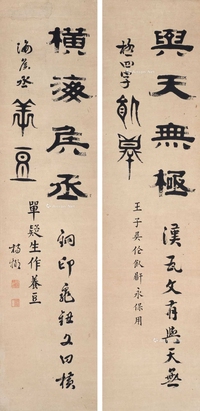 與天無極 漢瓦文有與天無
極四字
王子吳飤鼾永保用
橫海侯丞 銅印龜鈕文曰橫
海侯丞
單疑生作養豆